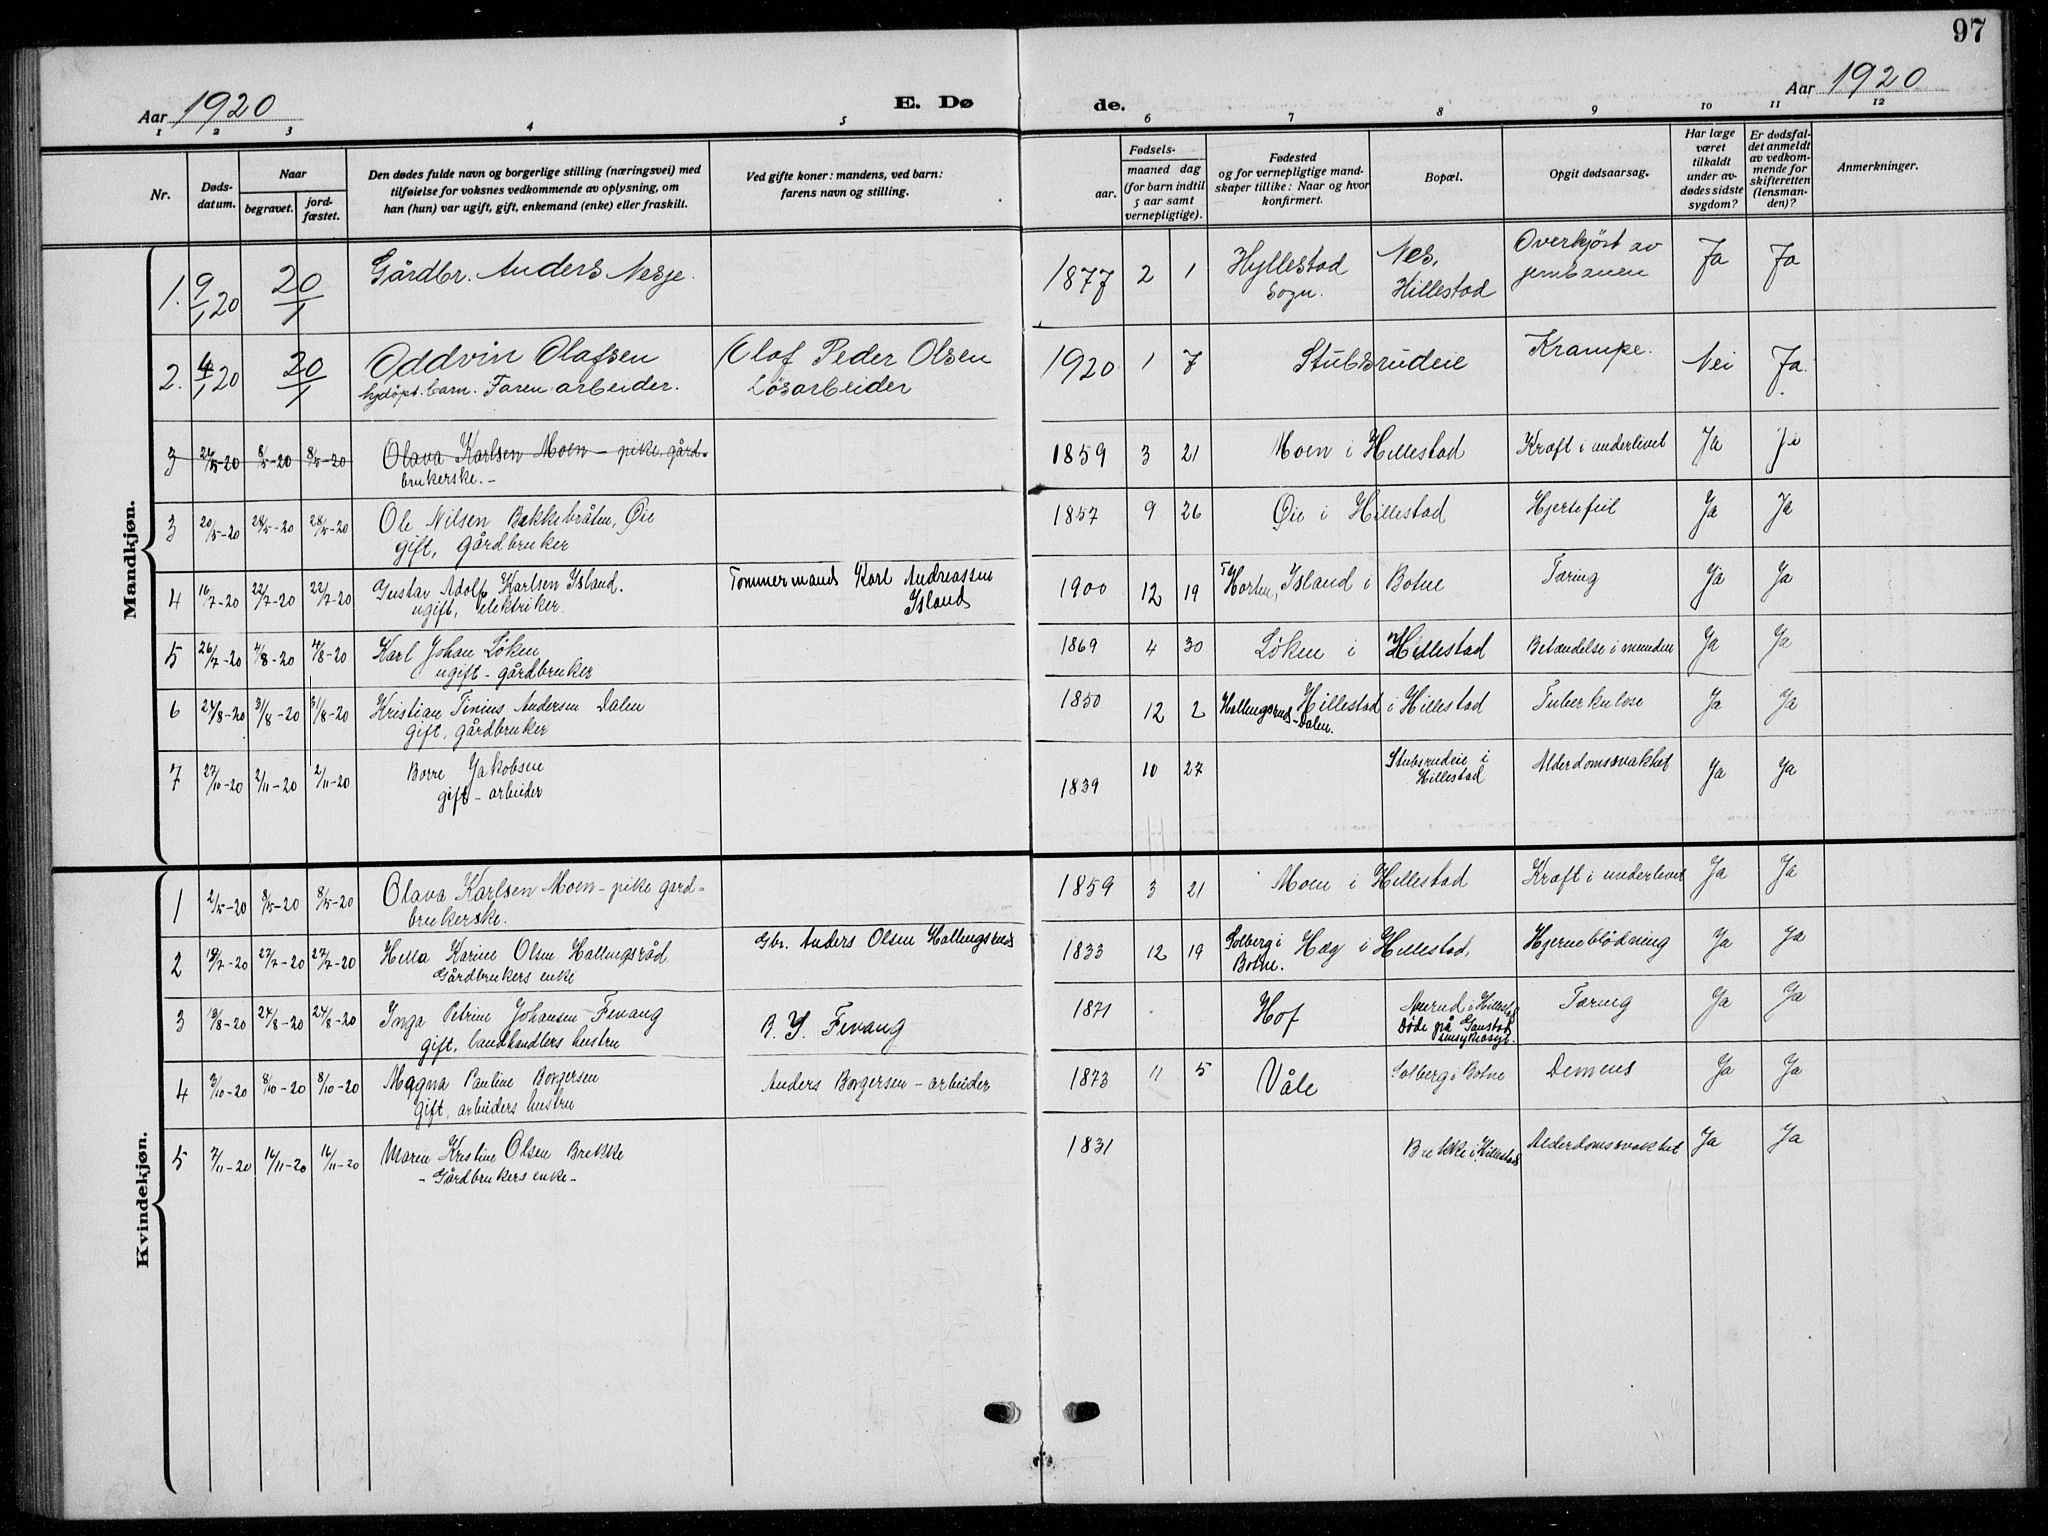 97
Aar 1920
E. Dø
de.
Aar 1920
1 2 3 4 5 6 7 8 9 10 11 12
Nr.
Døds-
datum.
Naar
begravet.
jord-
fæstet.
Den dødes fulde navn og borgerlige stilling (næringsvei) med
tilføielse for voksnes vedkommende av oplysning, om
han (hun) var ugift, gift, enkemand (enke) eller fraskilt.
Ved gifte koner: mandens, ved barn:
farens navn og stilling.
Fødsels-
aar.
maaned dag
(for barn indtil
5 aar samt
vernepligtige).
Fødested
og for vernepligtige mand-
skaper tillike: Naar og hvor
konfirmert.
Bopæl.
Opgit dødsaarsag.
Har læge
været
tilkaldt
under av-
dødes sidste
sygdom?
Er dødsfal-
det anmeldt
av vedkom-
mende for
skifteretten
(lensman-
den)?
Anmerkninger.
Mandkjøn.
1. 9/1 20 20/1 Gårdbr. Anders Nesje. 1877 2 1 Hyllestad Nes, Overkjørt av Ja Ja
Sogn. Hillestad jernbanen
2. 4/1 20 20/1 Oddvin Olafsen Olaf Peder Olsen 1920 1 7 Stubsrudeie Krampe. Nei Ja.
hjdøpt. barn. Faren arbeider. Løsarbeider
3 8/5-20 8/5-20 Olava Karlsen Moen - pike, gård- 1859 3 21 Moen i Hillestad Kræft i underlivet Ja Ja
brukerske. -
3 20/5-20 28/5-20 28/5-20 Ole Nilsen Bakkebråten, Øie 1857 9 26 Øie i Hillestad Hjertefeil Ja Ja
gift, gårdbruker
4 16/7-20 22/7-20 22/7-20 Gustav Adolf Karlsen Island. Tommermand Karl Andreassen 1900 12 19 Horten, Island i Botne Tæring Ja Ja
ugift, elektriker. Island
5 26/7-20 4/8-20 4/8-20 Karl Johan Løken 1869 4 30 Løken i Hillestad Betændelse i munden Ja Ja
ugift - gårdbruker
6 24/8-20 31/8-20 31/8-20 Kristian Tinius Andersen Dalen 1850 12 2 Hillestad i Hillestad Tuberkulose Ja Ja
gift, gårdbruker Hallingsrud-Dalen.
7 27/10-20 2/11-20 2/11-20 Borre Jakobsen 1839 10 27 Stubsrudeie i Alderdomssvakhet Ja Ja
gift - arbeider Hillestad
Kvindekjøn.
1 2/5-20 8/5-20 8/5-20 Olava Karlsen Moen - pike gard- 1859 3 21 Moen i Hillestad Kræft i underlivet Ja Ja
brukerske.
2 19/7-20 27/7-20 27/7-20 Hella Karine Olsen Hallingsråd Gbr. Anders Olsen Hallingsrud 1833 12 19 Solberg i Hæg i Hillestad, Hjerneblødning Ja Ja
Gårdbrukers enke Botne.
3 13/8-20 24/8-20 24/8-20 Inga Petrine Johansen Fevang B. J. Fevang 1871 Hof i Hillestad Tæring Ja Ja
gift, landhandlers hustru Døde på Gaustad
sinsykeasyl.
4 3/10-20 8/10-20 8/10-20 Magna Pauline Borgersen Anders Borgersen - arbeider 1873 11 5 Våle Solberg i Botne Demens Ja Ja
gift, arbeiders hustru
5 7/11-20 16/11-20 16/11-20 Maren Kristine Olsen Brekke 1831 Brekke i Hillestad Alderdomssvakhet Ja Ja
- Gårdbrukers enke -